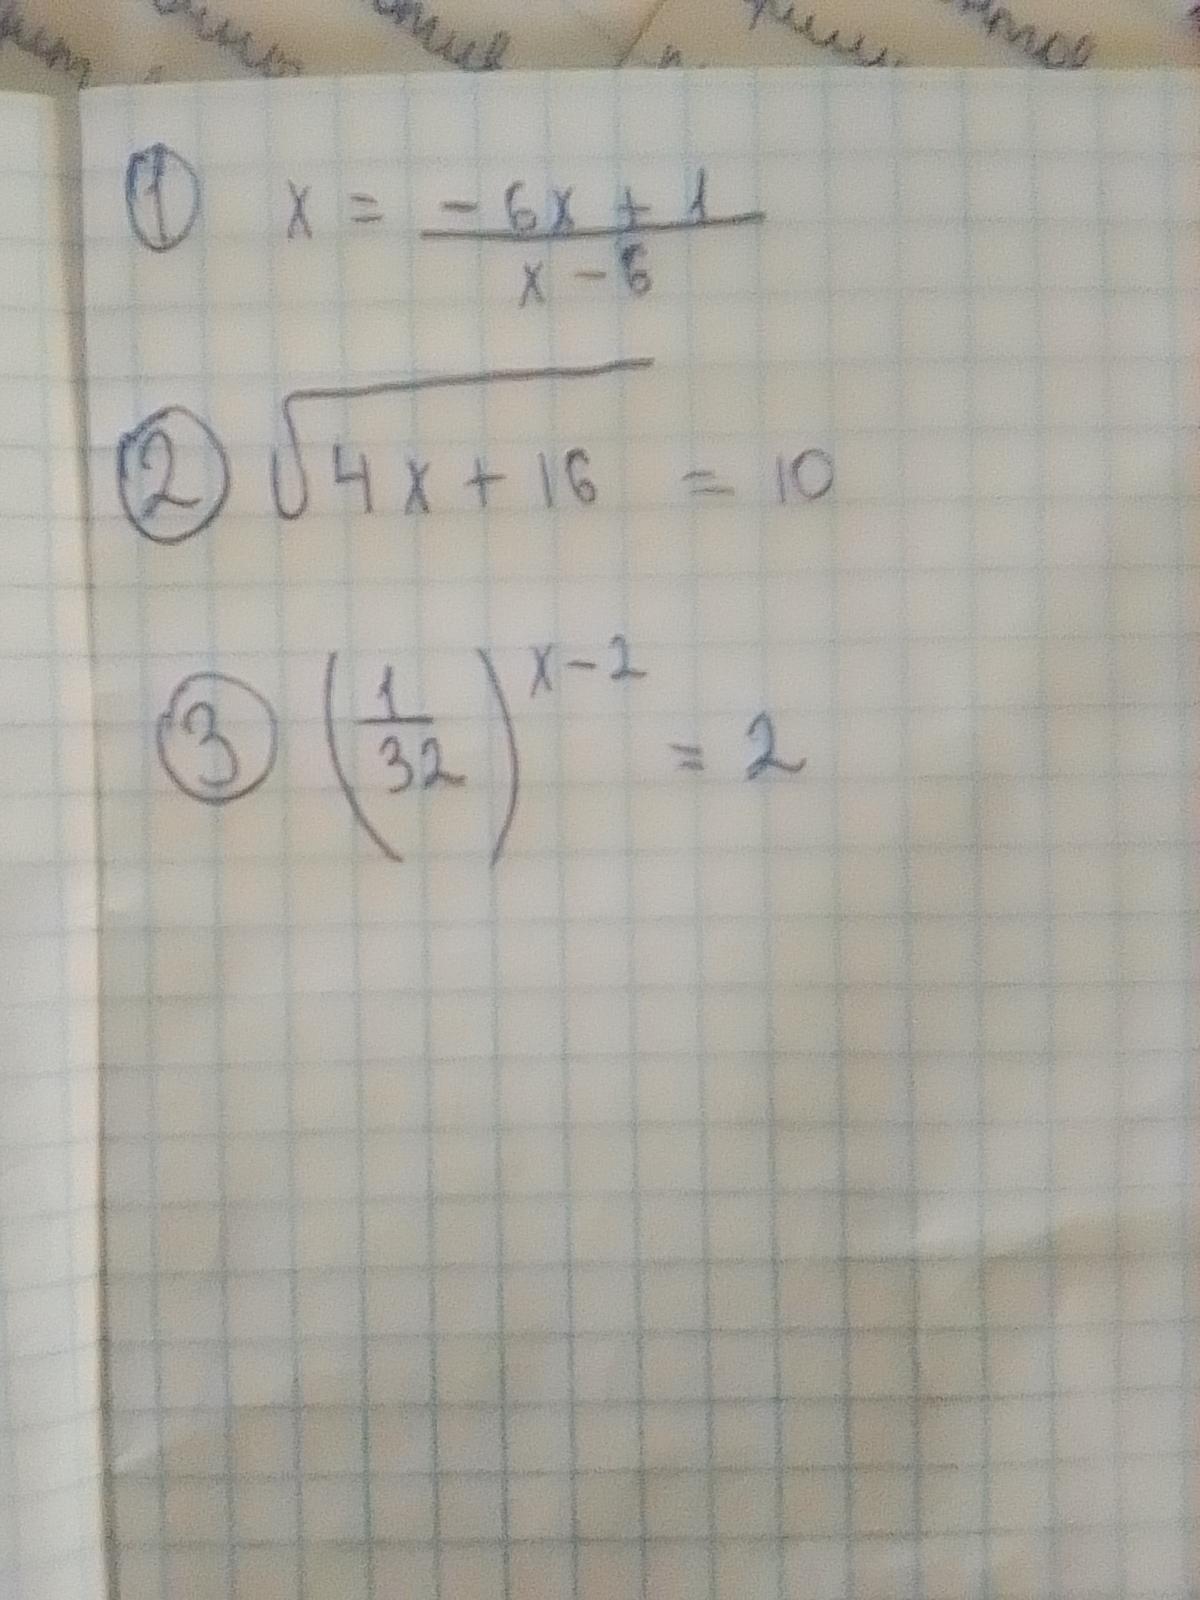 ① x = (-6x + 1)/(x - 6)
② √(4x + 16) = 10
③ (1/32)^(x-2) = 2